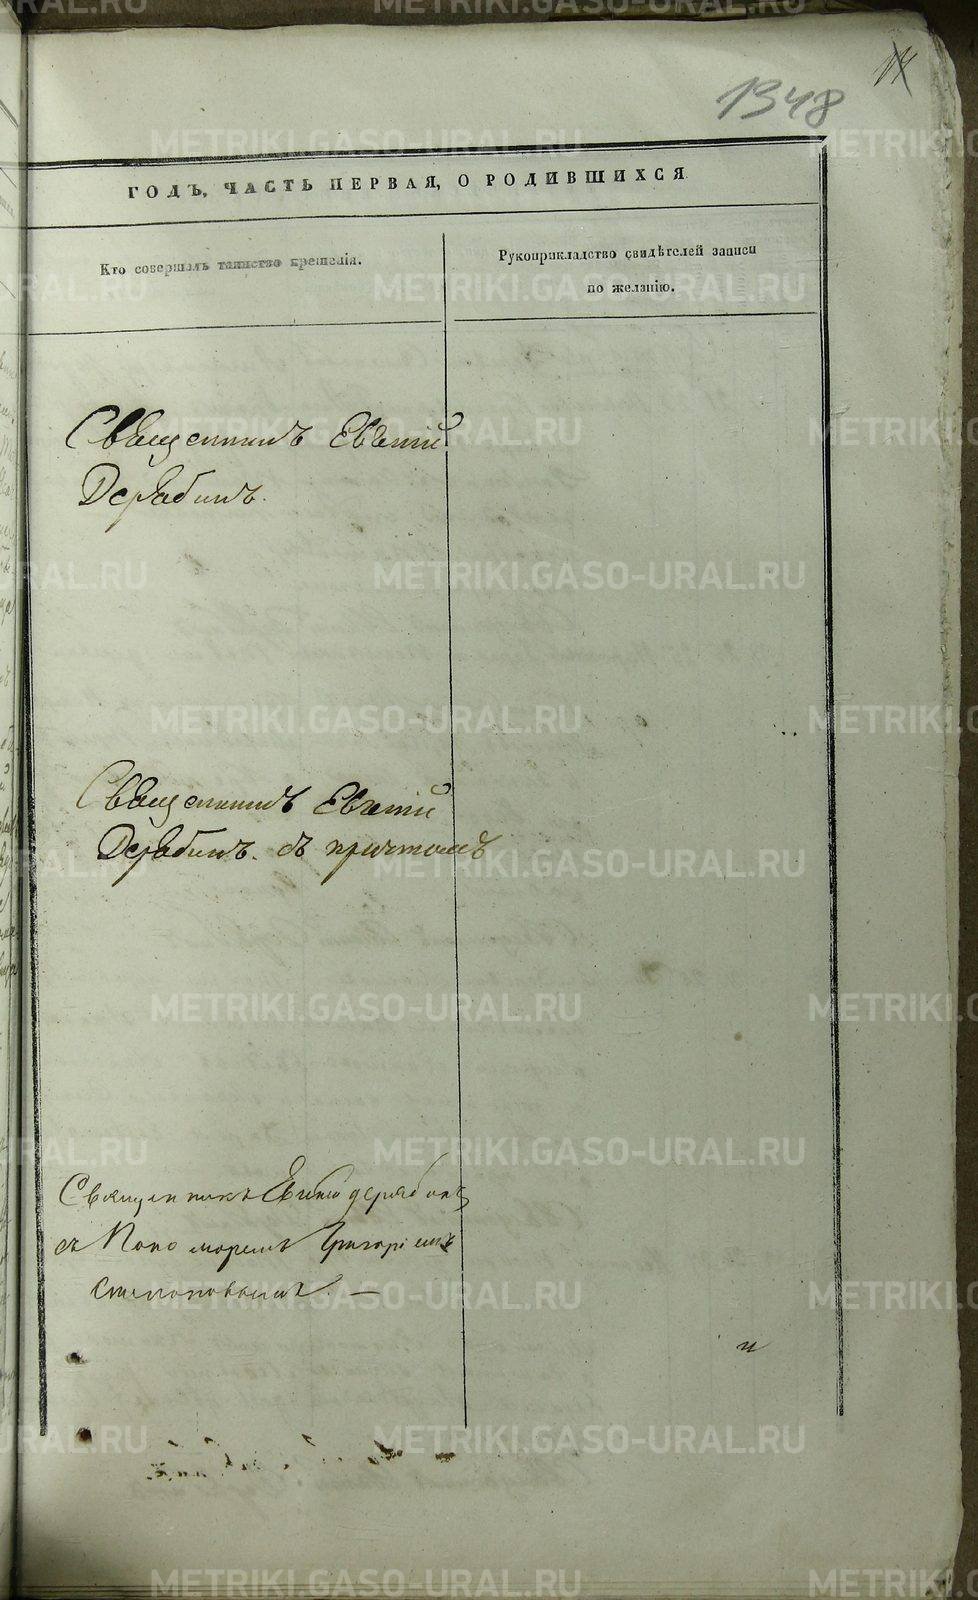 14
1348
ГОДЪ, ЧАСТЬ ПЕРВАЯ, О РОДИВШИХСЯ
Кто совершалъ таинство крещенія.
Рукоприкладство свидѣтелей записи
по желанію.
Священникъ Евѳимій
Дерябинъ.
Священникъ Евѳимій
Дерябинъ. съ причтомъ
Священникъ Дерябинъ
съ Поно маремъ Григоріемъ
Степановымъ. —
и
METRIKI.GASO-URAL.RU